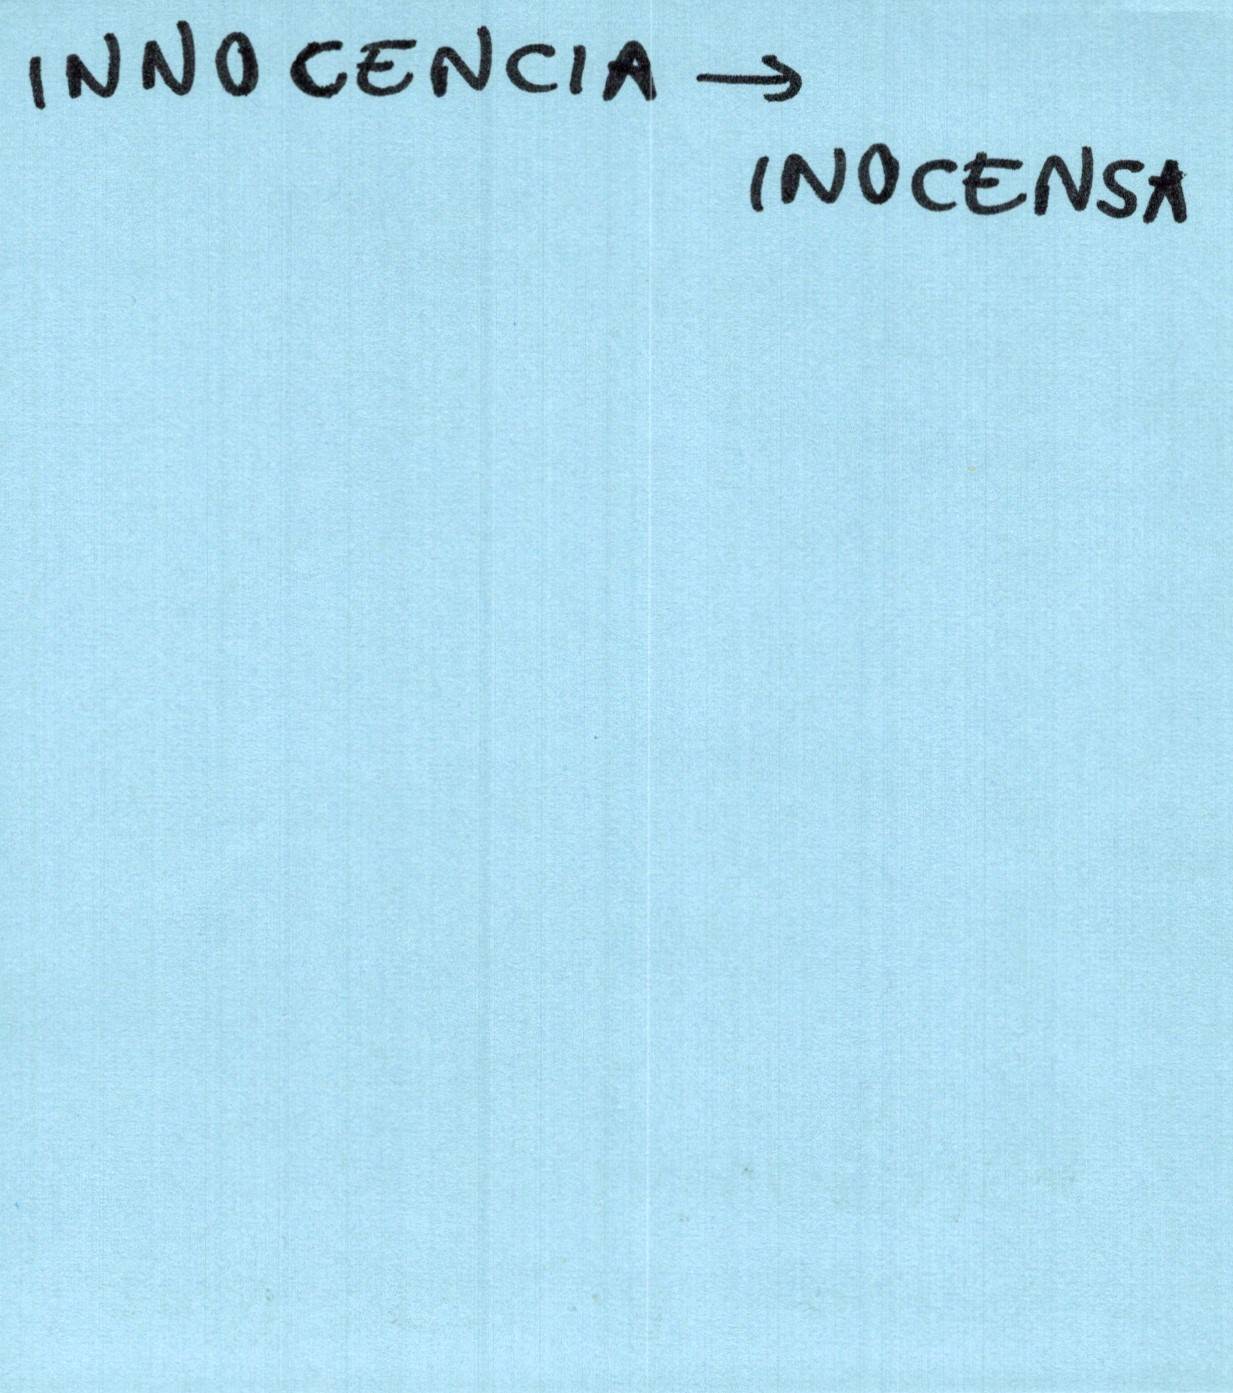 INNOCENCIA →
INOCENSA